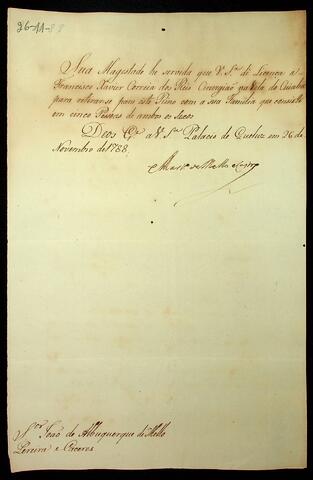 26-11-88
Sua Magestade he servida que V. S.ª dê Licença a
Francisco Xavier Correia dos Reis Cirurgião da Vila do Cuiabá
para retirarse para este Reino com a sua Familia que consiste
em cinco Pessoas de ambos os sexos.
Deos G.e a V. S.ª Palacio de Queluz em 26 de
Novembro de 1788.
Mart.º de Mello e Castro
S.or João de Albuquerque de Mello
Pereira e Caceres